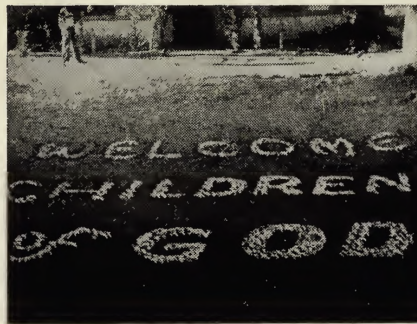 WELCOME
CHILDREN
of GOD